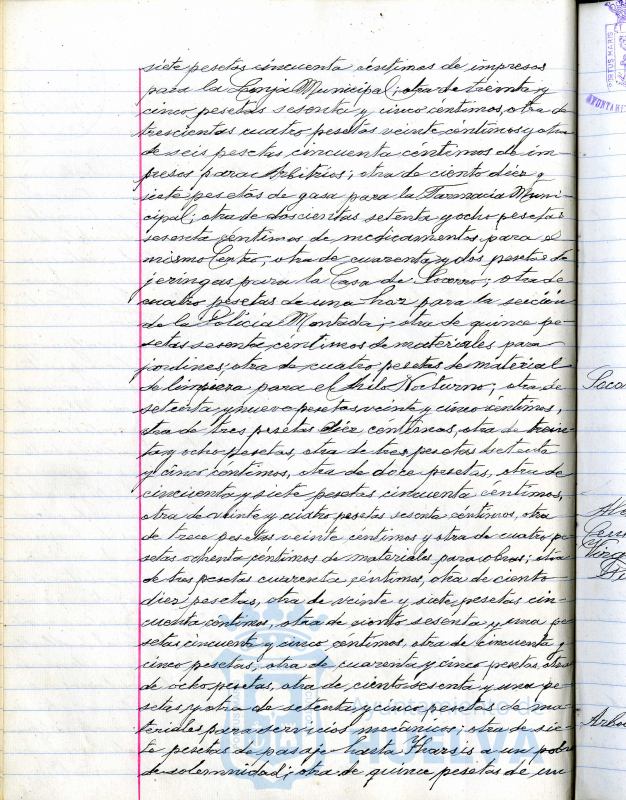 siete pesetas cincuenta céntimos de impresos
para la Lonja Municipal; otra de treinta y
cinco pesetas sesenta y cinco céntimos, otra de
trescientas cuatro pesetas veinte céntimos y otra
de seis pesetas cincuenta céntimos de im-
presos para Arbitrios; otra de ciento diez y
siete pesetas de gasa para la Farmacia Muni-
cipal; otra de doscientas setenta y ocho pesetas
sesenta céntimos de medicamentos para el
mismo Centro; otra de cuarenta y dos pesetas de
jeringas para la Casa de Socorro; otra de
cuatro pesetas de una hoz para la sección
de la Policía Montada; otra de quince pe-
setas sesenta céntimos de materiales para
jardines; otra de cuatro pesetas de material
de limpieza para el Asilo Nocturno; otra de
setenta y nueve pesetas veinte y cinco céntimos,
otra de tres pesetas diez céntimos, otra de trein-
ta y ocho pesetas, otra de tres pesetas setenta
y cinco céntimos, otra de doce pesetas, otra de
cincuenta y siete pesetas cincuenta céntimos,
otra de veinte y cuatro pesetas sesenta céntimos, otra
de trece pesetas veinte céntimos y otra de cuatro pe-
setas ochenta céntimos de materiales para obras; otra
de tres pesetas cuarenta céntimos, otra de ciento
diez pesetas, otra de veinte y siete pesetas cin-
cuenta céntimos, otra de ciento sesenta y una pe-
setas cincuenta y cinco céntimos, otra de cincuenta y
cinco pesetas, otra de cuarenta y cinco pesetas, otra
de ocho pesetas, otra de ciento sesenta y una pe-
setas y otra de setenta y cinco pesetas de ma-
teriales para servicios mecánicos; otra de sie-
te pesetas de pasaje hasta Tharsis a un pobre
de solemnidad; otra de quince pesetas de un
Ayuntamiento de
HUELVA